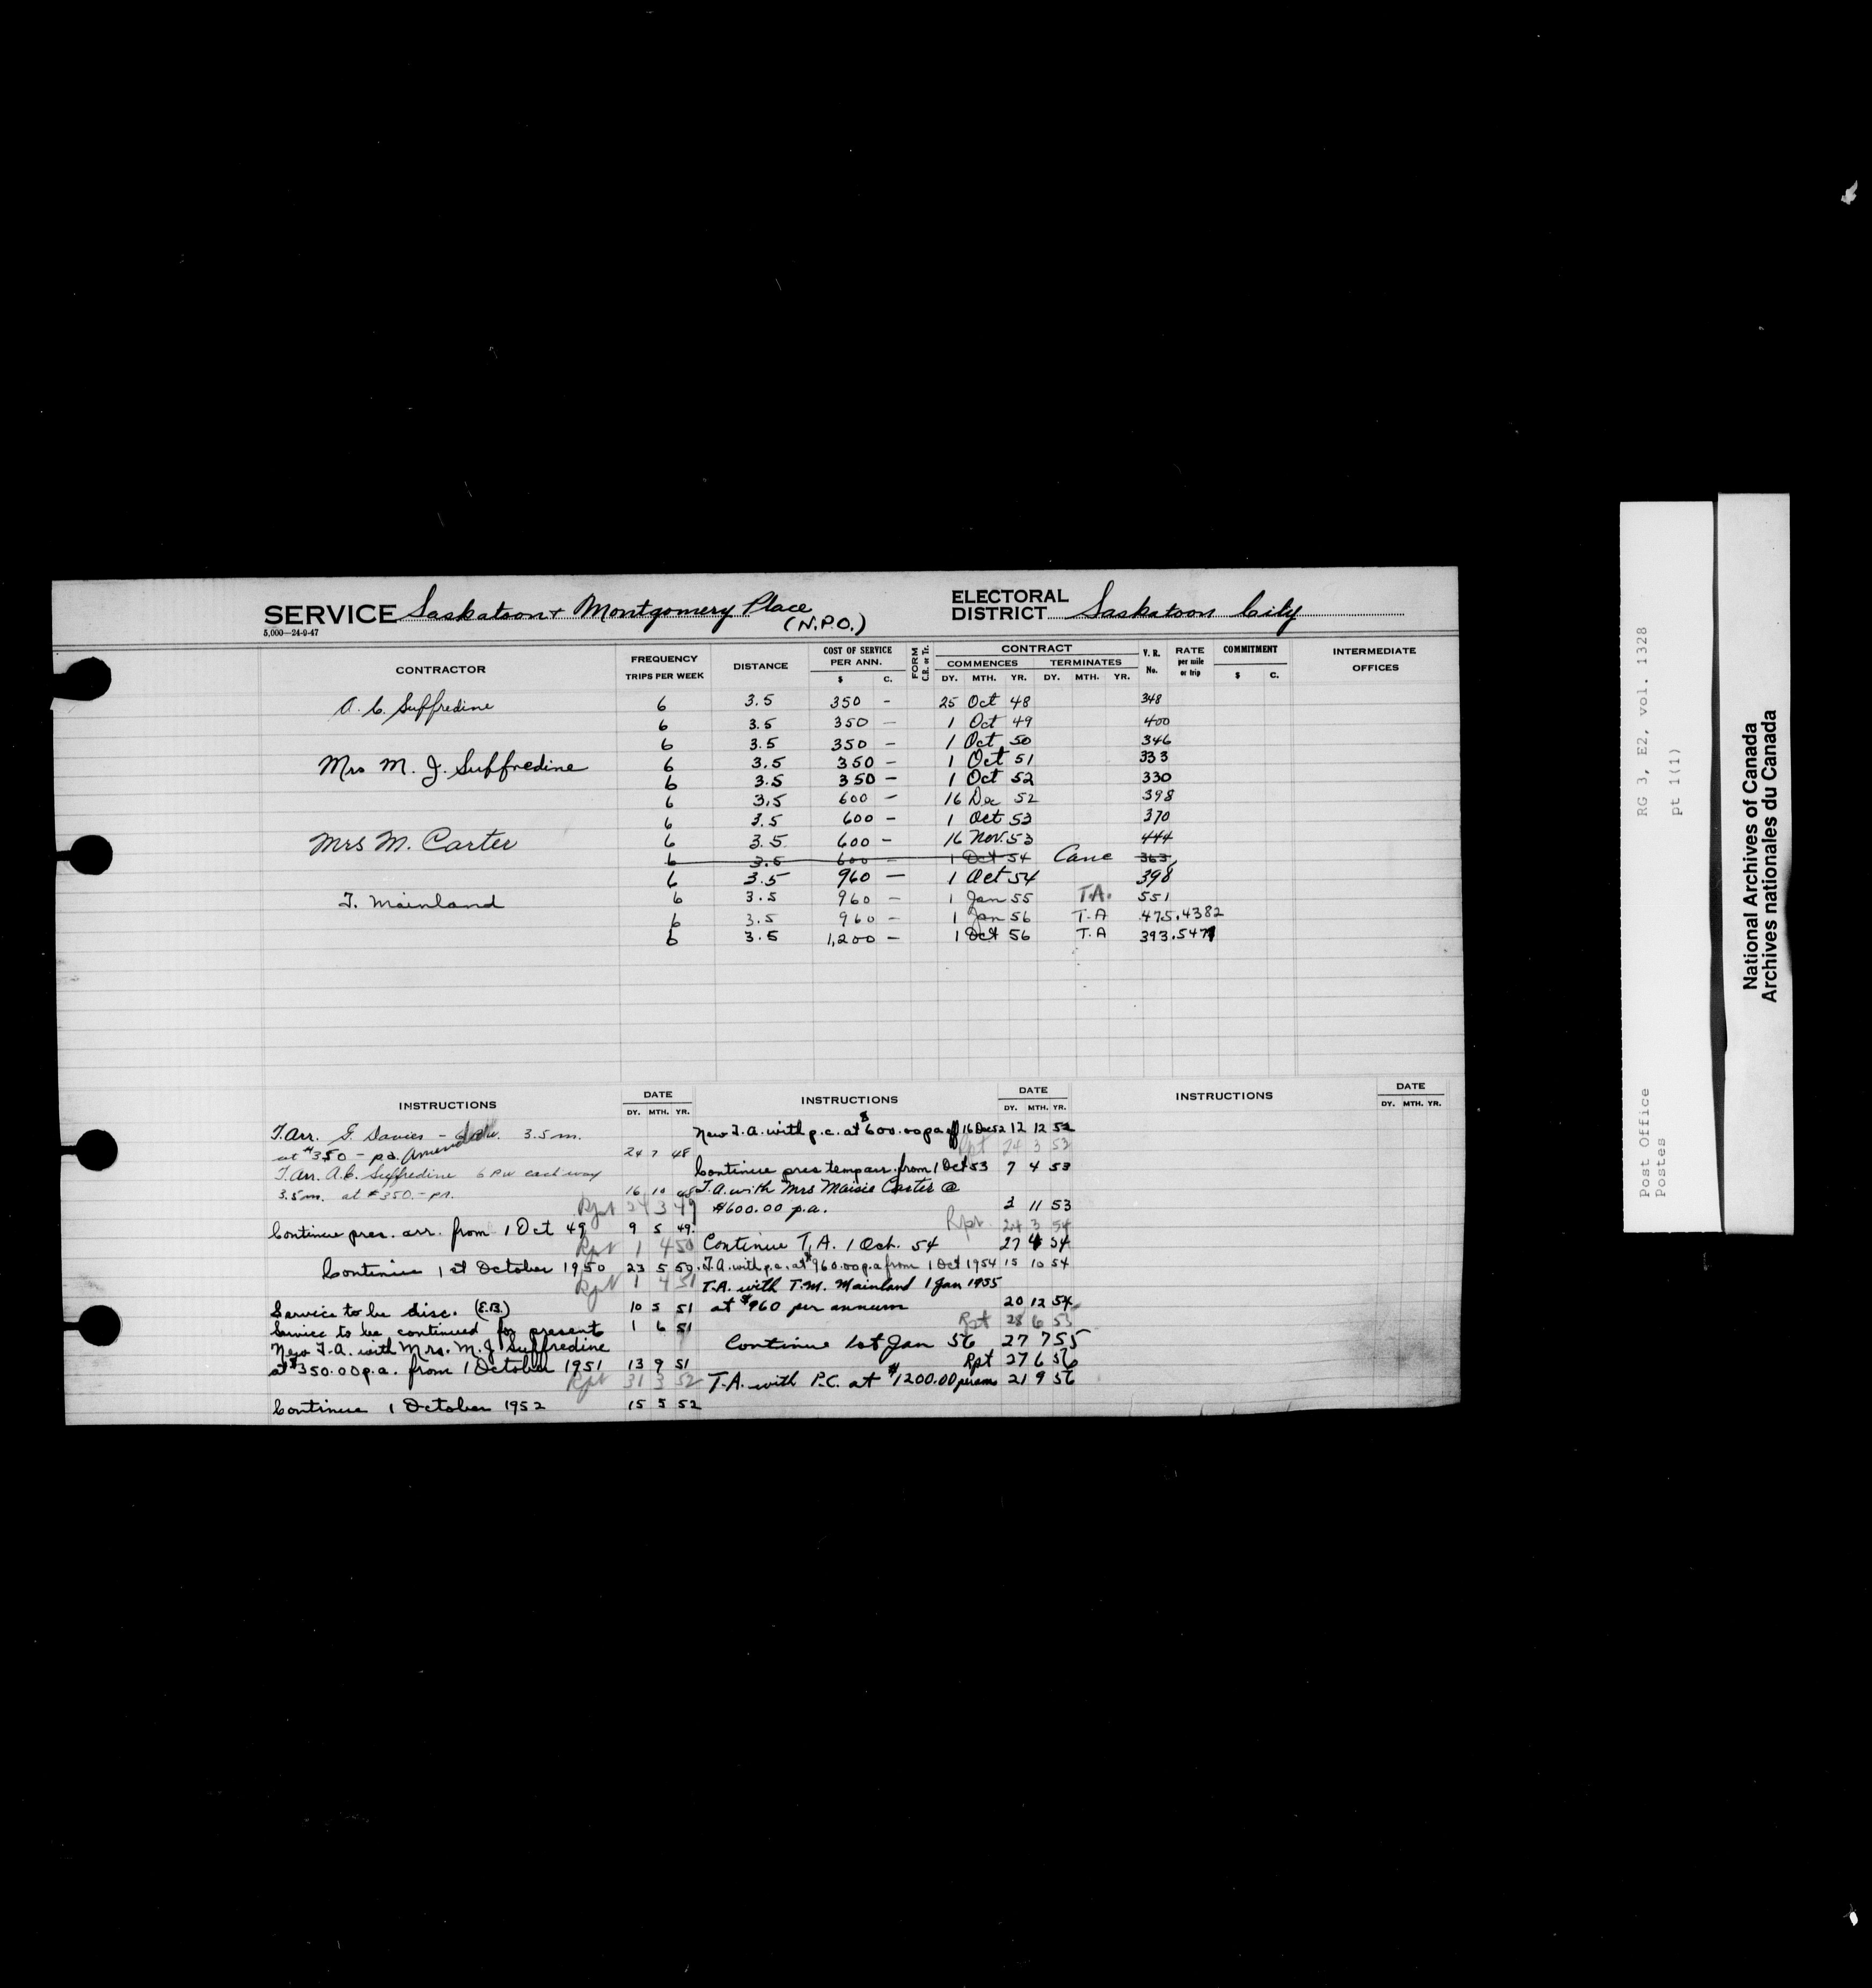 SERVICE Saskatoon & Montgomery Place
(N.P.O.)
5,000—24-9-47
ELECTORAL DISTRICT Saskatoon City
CONTRACTOR FREQUENCY TRIPS PER WEEK DISTANCE COST OF SERVICE PER ANN. $ C. FORM C.R. or Tr. CONTRACT COMMENCES DY. MTH. YR. TERMINATES DY. MTH. YR. V. R. No. RATE per mile or trip COMMITMENT $ C. INTERMEDIATE OFFICES
A. C. Suffredine 6 3.5 350 - 25 Oct 48 348
6 3.5 350 — 1 Oct 49 400
6 3.5 350 — 1 Oct 50 346
Mrs M. J. Suffredine 6 3.5 350 — 1 Oct 51 333
6 3.5 350 — 1 Oct 52 330
6 3.5 600 — 16 Dec 52 398
6 3.5 600 - 1 Oct 53 370
Mrs M. Carter 6 3.5 600 - 16 Nov. 53 444
6 3.5 600 - 1 Oct 54 Canc 363
6 3.5 960 — 1 Oct 54 398
T. Mainland 6 3.5 960 - 1 Jan 55 T.A. 551
6 3.5 960 - 1 Jan 56 T.A 475.4382
6 3.5 1,200 - 1 Oct 56 T.A 393.5471
INSTRUCTIONS DATE DY. MTH. YR.
T.Arr. G. Davies - 3.5 m.
at $350 - pa. 24 7 48
T.Arr. A.C. Suffredine 6 PW each way
3.5 m. at $350.- pa. 16 10 48
Rpt 24 3 49
Continue pres. arr. from 1 Oct 49 9 5 49.
Rpt 1 4 50
Continue 1st October 1950 23 5 50.
Rpt 1 4 51
Service to be disc. (E.B.) 10 5 51
Service to be continued for present 1 6 51
New T.A. with Mrs. M. J. Suffredine
at $350.00 p.a. from 1 October 1951 13 9 51
Rpt 31 3 52
Continue 1 October 1952 15 5 52
INSTRUCTIONS DATE DY. MTH. YR.
New T.A. with p.c. at $600.00 pa eff 16 Dec 52 12 12 52
Rpt 24 3 53
Continue pres temp arr. from 1 Oct 53 7 4 53
T.A. with Mrs Maisie Carter @
$600.00 p.a. 3 11 53
Rpt 24 3 54
Continue T.A. 1 Oct. 54 27 4 54
T.A. with p.c. at $960.00 p.a from 1 Oct 1954 15 10 54
T.A. with T.M. Mainland 1 Jan 1955
at $960 per annum 20 12 54
Rpt 28 6 55
Continue 1st Jan 56 27 7 55
Rpt 27 6 56
T.A. with P.C. at $1200.00 per am 21 9 56
INSTRUCTIONS DATE DY. MTH. YR.
Post Office
Postes
RG 3, E2, vol. 1328
pt 1(1)
National Archives of Canada
Archives nationales du Canada